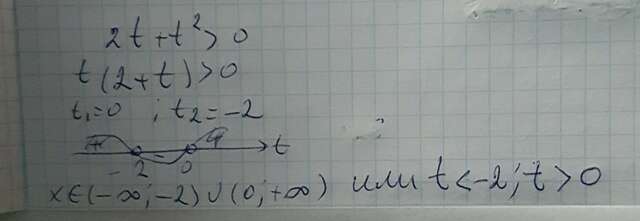 2t + t² > 0
t(2+t) > 0
t₁=0 ; t₂=-2
+ - + t
-2 0
x∈(-∞;-2)∪(0;+∞) или t<-2; t>0